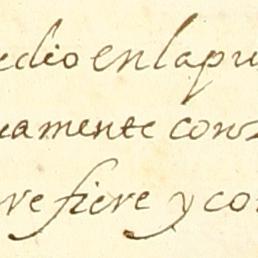 edio en la pu
uamente con
re fiere y co